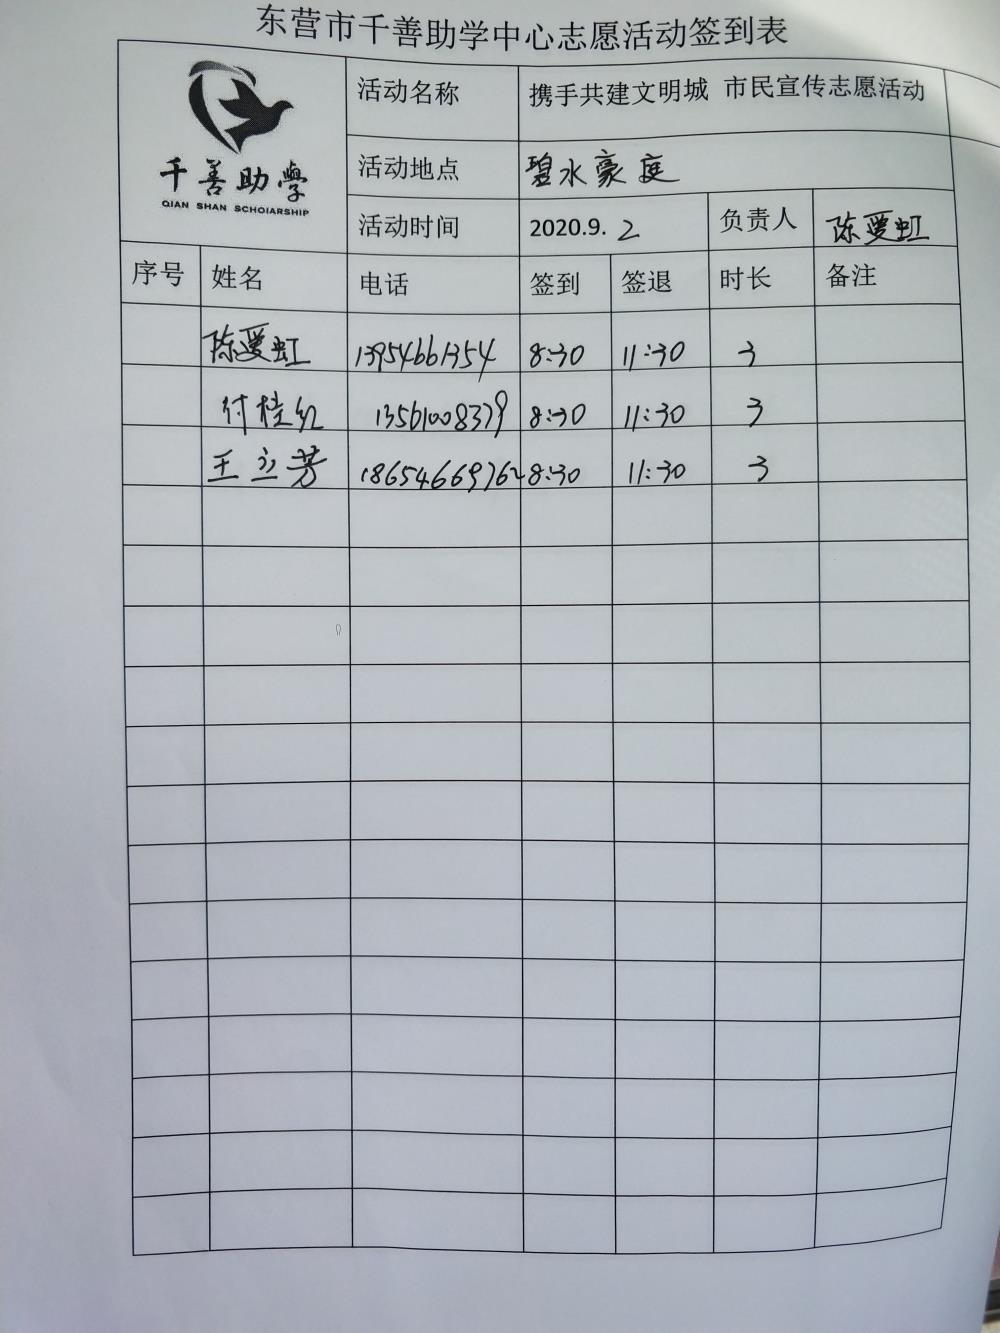 东营市千善助学中心志愿活动签到表
千善助學
QIAN SHAN SCHOIARSHIP
活动名称 携手共建文明城 市民宣传志愿活动
活动地点 碧水豪庭
活动时间 2020.9. 2 负责人 陈爱虹
序号 姓名 电话 签到 签退 时长 备注
陈爱虹 13954661354 8:30 11:30 3
付桂红 13561008379 8:30 11:30 3
王立芳 18654669762 8:30 11:30 3